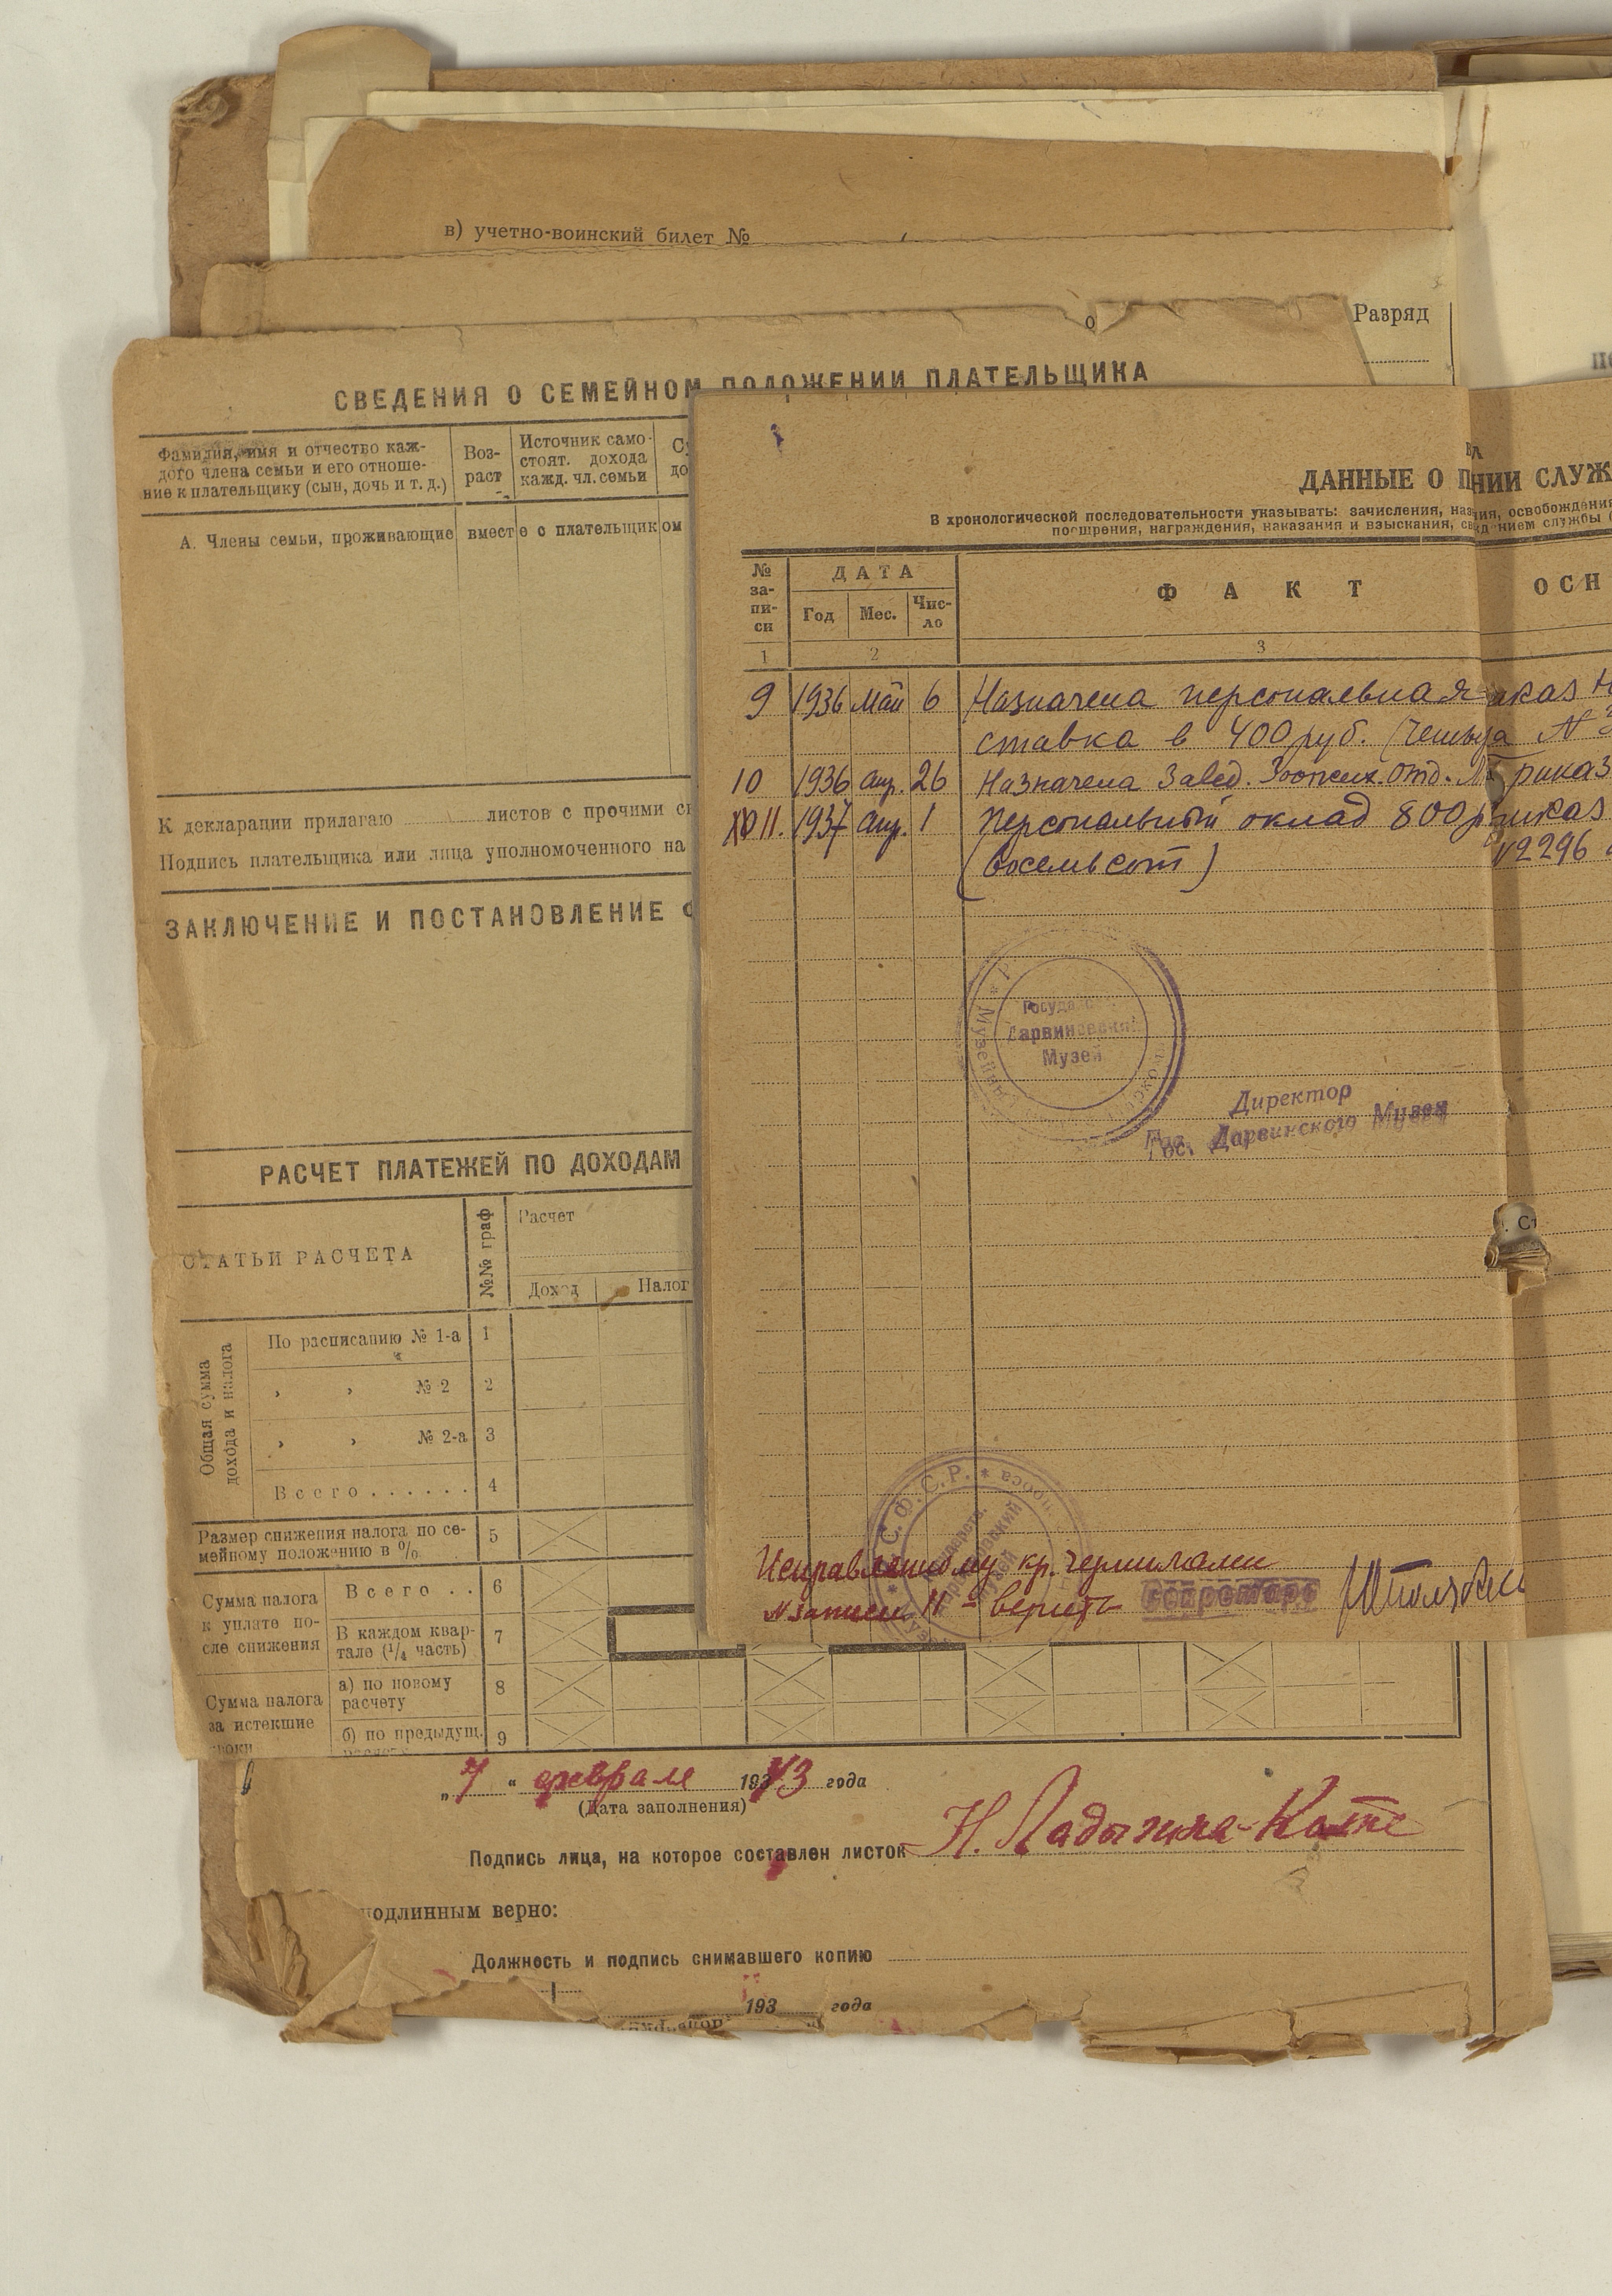 в) учетно-воинский билет №
о
Разряд
СВЕДЕНИЯ О СЕМЕЙНОМ ПОЛОЖЕНИИ ПЛАТЕЛЬЩИКА
Фамилия, имя и отчество каж-
дого члена семьи и его отноше-
ние к плательщику (сын, дочь и т. д.)
Воз-
раст
Источник само-
стоят. дохода
кажд. чл. семьи
А. Члены семьи, проживающие вместе с плательщиком
К декларации прилагаю листов с прочими
Подпись плательщика или лица уполномоченного на
ЗАКЛЮЧЕНИЕ И ПОСТАНОВЛЕНИЕ
РАСЧЕТ ПЛАТЕЖЕЙ ПО ДОХОДАМ
СТАТЬИ РАСЧЕТА
№№ граф
Расчет
Доход Налог
Общая сумма
дохода и налога
По расписанию № 1-а 1
„ „ № 2 2
„ „ № 2-а 3
Всего . . . . . . 4
Размер снижения налога по се-
мейному положению в % 5
Сумма налога
к уплате по-
сле снижения
Всего . . 6
В каждом квар-
тале (¹/₄ часть) 7
Сумма налога
за истекшие
сроки
а) по новому
расчету 8
б) по предыдущ. 9
ДАННЫЕ О П НИИ СЛУЖ
В хронологической последовательности указывать: зачисления, наз ия, освобождения
поощрения, награждения, наказания и взыскания, св нием службы
№
за-
пи-
си
ДАТА
Год Мес. Чис-
ло
ФАКТ
ОСН
1 2 3
9 1936 май 6 Назначена персональная каз
ставка в 400 руб. №
10 1936 апр. 26 Назначена Завед. Зоопсих. отд. риказ
11. 1937 апр. 1 Персональный оклад 800 р каз
(восемьсот) №2296
Музей
Дарвиновский
Музей
Директор
Гос. Дарвинского Музея
С.Ф.С.Р.
Исправленному кр. чернилами
№ записи 11 - верить Секретарь
„7“ февраля 1943 года
(Дата заполнения)
Подпись лица, на которое составлен листок Н. Ладыгина-Котс
подлинным верно:
Должность и подпись снимавшего копию
193 года